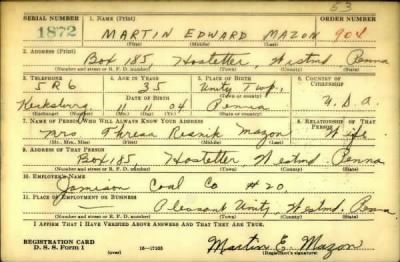 53
SERIAL NUMBER 1. NAME (Print) ORDER NUMBER
1872 MARTIN EDWARD MAZON 904
(First) (Middle) (Last)
2. ADDRESS (Print)
Box 185, Hostetter, Westmd, Penna
(Number and street or R. F. D. number) (Town) (County) (State)
3. TELEPHONE 4. AGE IN YEARS 5. PLACE OF BIRTH 6. COUNTRY OF CITIZENSHIP
5R6 35 Unity Twp,
DATE OF BIRTH (Town or county)
11 11 04 Penna U.S.A.
(Exchange) (Number) (Mo.) (Day) (Yr.) (State or country)
7. NAME OF PERSON WHO WILL ALWAYS KNOW YOUR ADDRESS 8. RELATIONSHIP OF THAT PERSON
Mrs. Theresa Resnik Mazon Wife
(Mr., Mrs., Miss) (First) (Middle) (Last)
9. ADDRESS OF THAT PERSON
Box 185, Hostetter Westmd Penna
(Number and street or R. F. D. number) (Town) (County) (State)
10. EMPLOYER'S NAME
Jamison Coal Co #20,
11. PLACE OF EMPLOYMENT OR BUSINESS
Pleasant Unity, Westmd, Penna
(Number and street or R. F. D. number) (Town) (County) (State)
I AFFIRM THAT I HAVE VERIFIED ABOVE ANSWERS AND THAT THEY ARE TRUE.
REGISTRATION CARD
D. S. S. Form 1 (over) Martin E. Mazon
(Registrant's signature)